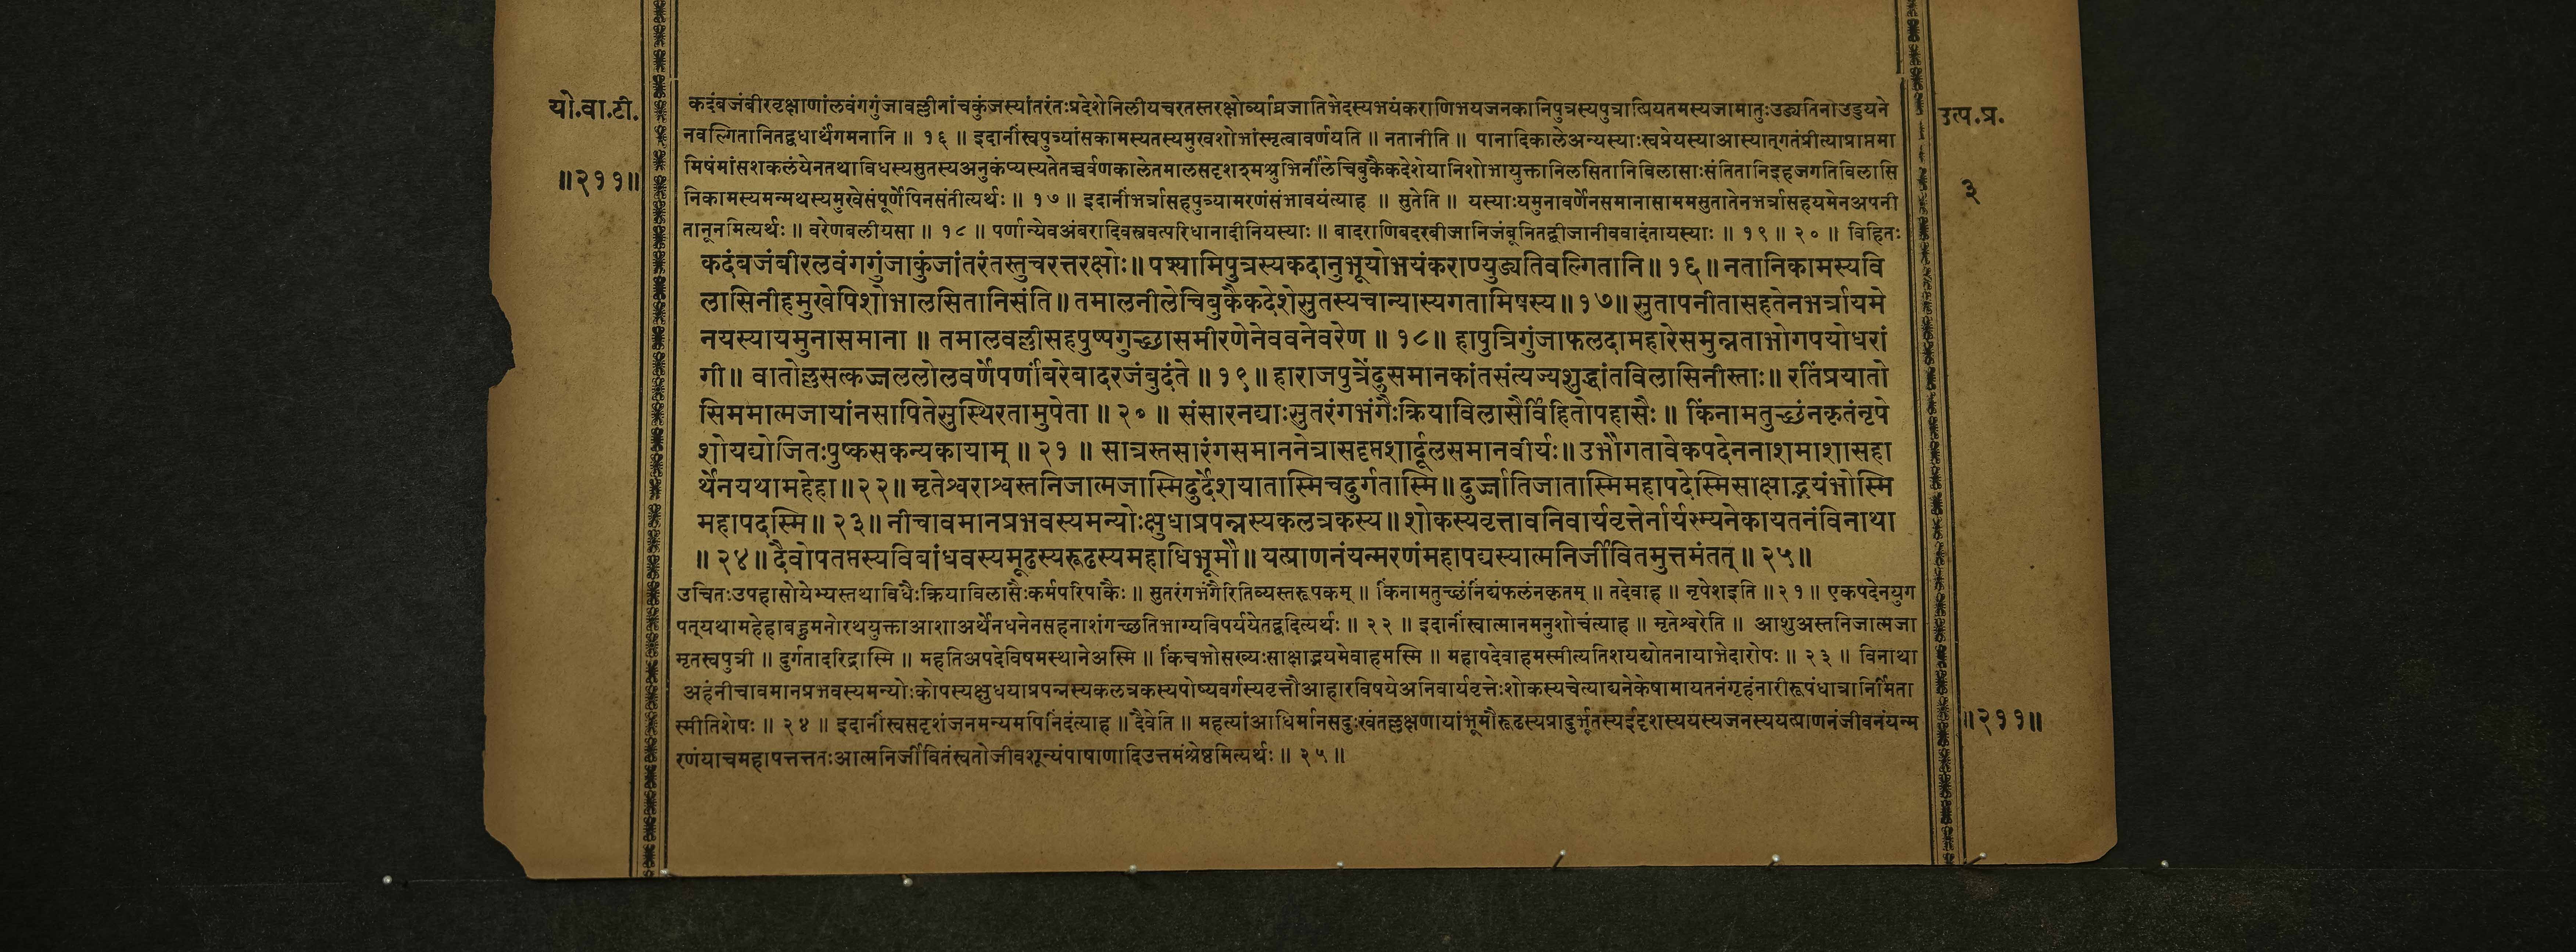 यो.वा.टी.
॥२११॥
कदंबजंबीरवृक्षाणांलवंगगुंजावल्लीनांचकुंजस्यांतरंतःप्रदेशेनिलीयचरतस्तरक्षोर्व्याघ्रजातिभेदस्यभयंकराणिभयजनकानिपुत्रस्यपुत्रात्प्रियतमस्यजामातुःउड्यतिनोउडुयने
नवल्गितानितद्वधार्थंगमनानि ॥ १६ ॥ इदानींस्वपुत्र्यांसकामस्यतस्यमुखशोभांस्मृत्वावर्णयति ॥ नतानीति ॥ पानादिकालेअन्यस्याःस्वप्रेयस्याआस्यात्गतंप्रीत्याप्राप्तमा
मिषंमांसशकलंयेनतथाविधस्यसुतस्यअनुकंप्यस्यतेतच्चर्वणकालेतमालसदृशश्मश्रुभिर्नीलेचिबुकैकदेशेयानिशोभायुक्तानिलसितानिविलासाःसंतितानिइहजगतिविलासि
निकामस्यमन्मथस्यमुखेसंपूर्णेपिनसंतीत्यर्थः ॥ १७ ॥ इदानींभर्त्रासहपुत्र्यामरणंसंभावयंत्याह ॥ सुतेति ॥ यस्याःयमुनावर्णेनसमानासाममसुतातेनभर्त्रासहयमेनअपनी
तानूनमित्यर्थः ॥ वरेणबलीयसा ॥ १८ ॥ पर्णान्येवअंबरादिवस्त्रवत्परिधानादीनियस्याः ॥ बादराणिबदरबीजानिजंबूनितद्बीजानीवबादंतायस्याः ॥ १९ ॥ २० ॥ विहितः
कदंबजंबीरलवंगगुंजाकुंजांतरंतस्तुचरत्तरक्षोः ॥ पश्यामिपुत्रस्यकदानुभूयोभयंकराण्युड्यतिवल्गितानि ॥ १६ ॥ नतानिकामस्यवि
लासिनीहमुखेपिशोभालसितानिसंति ॥ तमालनीलेचिबुकैकदेशेसुतस्यचान्यास्यगतामिषस्य ॥ १७ ॥ सुतापनीतासहतेनभर्त्रायमे
नयस्यायमुनासमाना ॥ तमालवल्लीसहपुष्पगुच्छासमीरणेनेववनेवरेण ॥ १८ ॥ हापुत्रिगुंजाफलदामहारेसमुन्नताभोगपयोधरां
गी ॥ वातोल्लसत्कज्जललोलवर्णेपर्णांबरेबादरजंबुदंते ॥ १९ ॥ हाराजपुत्रेंदुसमानकांतसंत्यज्यशुद्धांतविलासिनीस्ताः ॥ रतिंप्रयातो
सिममात्मजायांनसापितेसुस्थिरतामुपेता ॥ २० ॥ संसारनद्याःसुतरंगभंगैःक्रियाविलासैर्विहितोपहासैः ॥ किंनामतुच्छंनकृतंनृपे
शोयद्योजितःपुष्कसकन्यकायाम् ॥ २१ ॥ सात्रस्तसारंगसमाननेत्रासदृप्तशार्दूलसमानवीर्यः ॥ उभौगतावेकपदेननाशमाशासहा
र्थेनयथामहेहा ॥ २२ ॥ मृतेश्वराश्वस्तनिजात्मजास्मिदुर्देशयातास्मिचदुर्गतास्मि ॥ दुर्जातिजातास्मिमहापदेस्मिसाक्षाद्भयंभोस्मि
महापदस्मि ॥ २३ ॥ नीचावमानप्रभवस्यमन्योःक्षुधाप्रपन्नस्यकलत्रकस्य ॥ शोकस्यवृत्तावनिवार्यवृत्तेर्नार्यस्म्यनेकायतनंविनाथा
॥ २४ ॥ दैवोपतप्तस्यविबांधवस्यमूढस्यरूढस्यमहाधिभूमौ ॥ यत्प्राणनंयन्मरणंमहापद्यस्यात्मनिर्जीवितमुत्तमंतत् ॥ २५ ॥
उचितःउपहासोयेभ्यस्तथाविधैःक्रियाविलासैःकर्मपरिपाकैः ॥ सुतरंगभंगैरितिव्यस्तरूपकम् ॥ किंनामतुच्छंनिंद्यंफलंनकृतम् ॥ तदेवाह ॥ नृपेशइति ॥ २१ ॥ एकपदेनयुग
पत्यथामहेहाबहुमनोरथयुक्ताआशाअर्थेनधनेनसहनाशंगच्छतिभाग्यविपर्ययेतद्वदित्यर्थः ॥ २२ ॥ इदानींस्वात्मानमनुशोचंत्याह ॥ मृतेश्वरेति ॥ आशुअस्तनिजात्मजा
मृतस्वपुत्री ॥ दुर्गतादरिद्रास्मि ॥ महतिअपदेविषमस्थानेअस्मि ॥ किंचभोसख्यःसाक्षाद्भयमेवाहमस्मि ॥ महापदेवाहमस्मीत्यतिशयद्योतनायाभेदारोपः ॥ २३ ॥ विनाथा
अहंनीचावमानप्रभवस्यमन्योःकोपस्यक्षुधयाप्रपन्नस्यकलत्रकस्यपोष्यवर्गस्यवृत्तौआहारविषयेअनिवार्यवृत्तेःशोकस्यचेत्याद्यनेकेषामायतनंगृहंनारीरूपंधात्रानिर्मिता
स्मीतिशेषः ॥ २४ ॥ इदानींस्वसदृशंजनमन्यमपिनिंदंत्याह ॥ दैवेति ॥ महत्यांआधिर्मानसदुःखंतल्लक्षणायांभूमौरूढस्यप्रादुर्भूतस्यईदृशस्ययस्यजनस्ययत्प्राणनंजीवनंयन्म
रणंयाचमहापत्तत्ततःआत्मनिर्जीवितंस्वतोजीवशून्यंपाषाणादिउत्तमंश्रेष्ठमित्यर्थः ॥ २५ ॥
उत्प.प्र.
३
॥२११॥